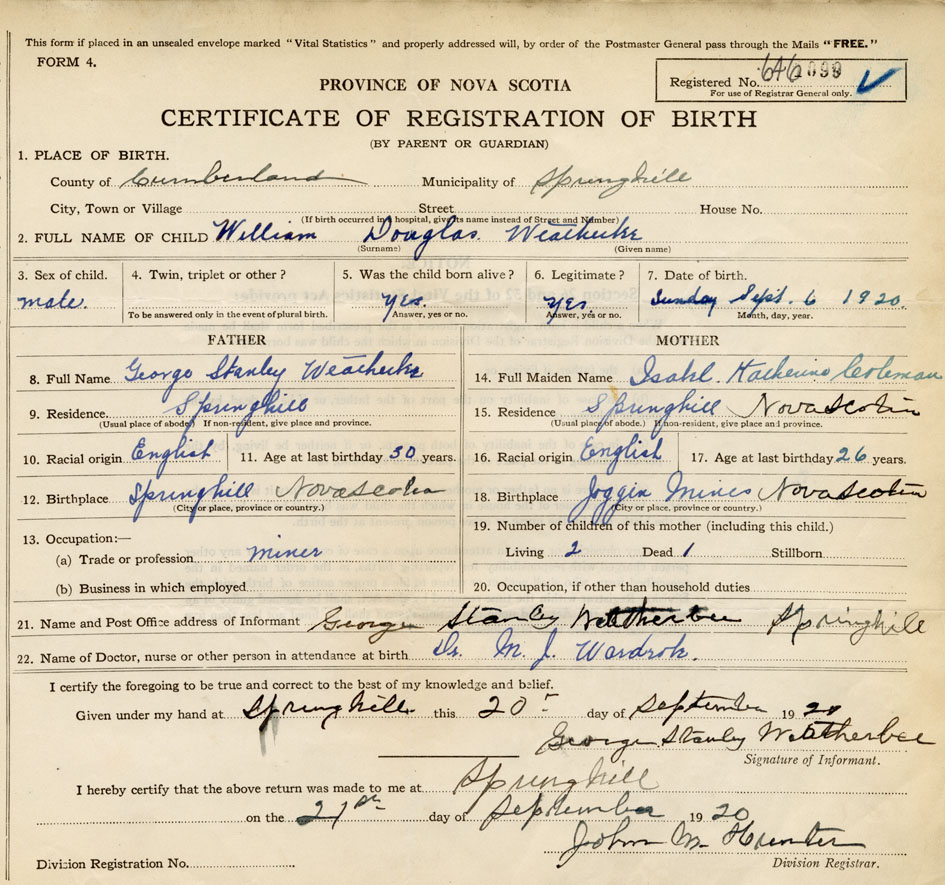 This form if placed in an unsealed envelope marked "Vital Statistics" and properly addressed will, by order of the Postmaster General pass through the Mails "FREE."
FORM 4.
Registered No. 646099
For use of Registrar General only.
PROVINCE OF NOVA SCOTIA
CERTIFICATE OF REGISTRATION OF BIRTH
(BY PARENT OR GUARDIAN)
1. PLACE OF BIRTH.
County of Cumberland Municipality of Springhill
City, Town or Village Street House No.
(If birth occurred in hospital, give its name instead of Street and Number)
2. FULL NAME OF CHILD William Douglas Weatherbe
(Surname) (Given name)
3. Sex of child. 4. Twin, triplet or other? 5. Was the child born alive? 6. Legitimate? 7. Date of birth.
male. yes. yes Sunday Sept. 6 1920.
To be answered only in the event of plural birth. Answer, yes or no. Answer, yes or no. Month, day, year.
FATHER MOTHER
8. Full Name George Stanley Weatherbe 14. Full Maiden Name Isabel Katherine Coleman
9. Residence Springhill 15. Residence Springhill Nova Scotia
(Usual place of abode) If non-resident, give place and province. (Usual place of abode) If non-resident, give place and province.
10. Racial origin English 11. Age at last birthday 30 years. 16. Racial origin English 17. Age at last birthday 26 years.
12. Birthplace Springhill Nova Scotia 18. Birthplace Joggin Mines Nova Scotia
(City or place, province or country.) (City or place, province or country.)
13. Occupation:— 19. Number of children of this mother (including this child.)
(a) Trade or profession miner Living 2 Dead 1 Stillborn
(b) Business in which employed 20. Occupation, if other than household duties
21. Name and Post Office address of Informant George Stanley Wetherbee Springhill
22. Name of Doctor, nurse or other person in attendance at birth Dr. M. J. Wardrok.
I certify the foregoing to be true and correct to the best of my knowledge and belief.
Given under my hand at Springhill this 20 day of September 1920
George Stanley Wetherbee
Signature of Informant.
I hereby certify that the above return was made to me at Springhill
on the 21st day of September 1920
John M. Hunter
Division Registration No. Division Registrar.